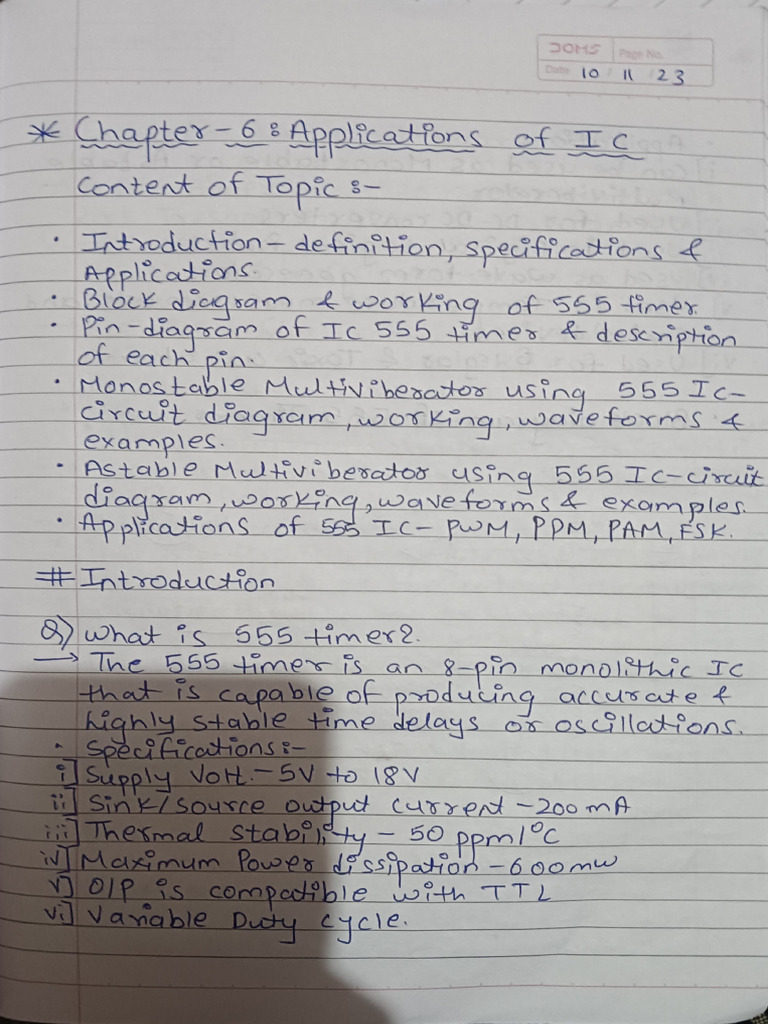 DOMS Page No.
Date 10 11 23
* Chapter-6 : Applications of IC
Content of Topic :-
• Introduction - definition, specifications &
Applications.
• Block diagram & working of 555 timer.
• Pin-diagram of Ic 555 timer & description
of each pin.
• Monostable Multiviberator using 555 Ic-
circuit diagram, working, waveforms &
examples.
• Astable Multiviberator using 555 Ic-circuit
diagram, working, waveforms & examples.
• Applications of 555 IC- PWM, PPM, PAM, FSK.
# Introduction
Q) What is 555 timer?.
→ The 555 timer is an 8-pin monolithic IC
that is capable of producing accurate &
highly stable time delays or oscillations.
• Specifications:-
i] Supply Volt.- 5V to 18V
ii] Sink/source output current - 200 mA
iii] Thermal stability - 50 ppm/°C
iv] Maximum Power dissipation - 600mw
v] O/P is compatible with TTL
vi] Variable Duty cycle.